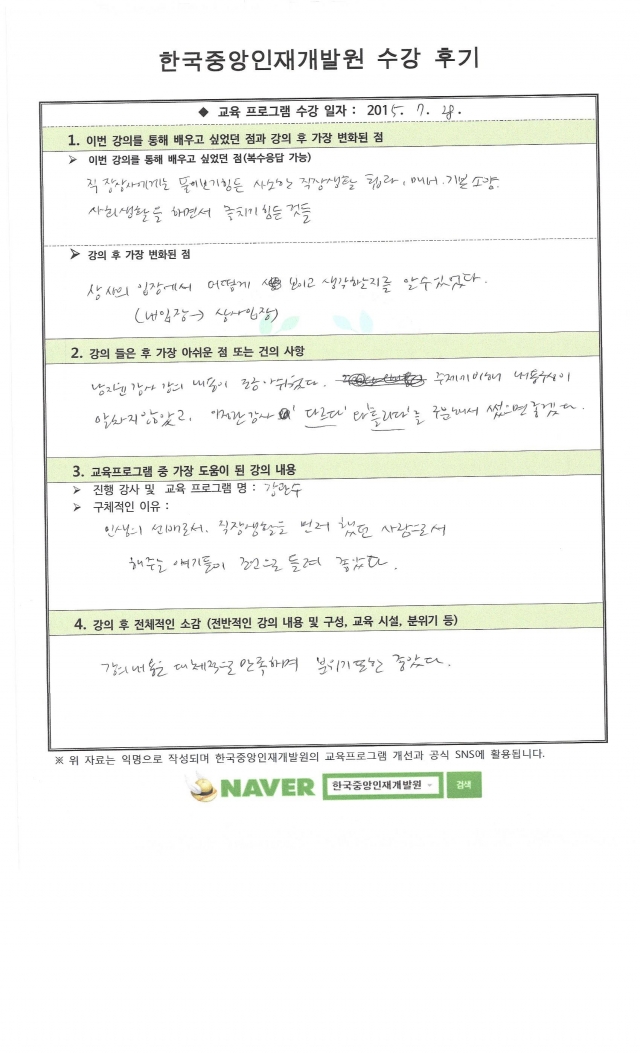 한국중앙인재개발원 수강 후기
◆ 교육 프로그램 수강 일자 : 2015. 7. 28.
1. 이번 강의를 통해 배우고 싶었던 점과 강의 후 가장 변화된 점
➤ 이번 강의를 통해 배우고 싶었던 점(복수응답 가능)
직장상사에게는 물어보기힘든 사소한 직장생활 팁과, 매너, 기본소양.
사회생활을 하면서 놓치기힘든것들
➤ 강의 후 가장 변화된 점
상사의 입장에서 어떻게 보이고 생각하는지를 알수있었다.
(내입장→ 상사입장)
2. 강의 들은 후 가장 아쉬운 점 또는 건의 사항
강사 강의 내용이 조금아쉬웠다. 주제에비해 내용구성이
알차지않았고, 강사 '다르다'와'틀리다'를 구분해서 썼으면좋겠다.
3. 교육프로그램 중 가장 도움이 된 강의 내용
➤ 진행 강사 및 교육 프로그램 명 : 강관수
➤ 구체적인 이유 :
인생의 선배로서, 직장생활을 먼저 했던 사람으로서
해주는 얘기들이 들려 좋았다.
4. 강의 후 전체적인 소감 (전반적인 강의 내용 및 구성, 교육 시설, 분위기 등)
강의내용은 대체적으로만족하며 분위기또한 좋았다.
※ 위 자료는 익명으로 작성되며 한국중앙인재개발원의 교육프로그램 개선과 공식 SNS에 활용됩니다.
NAVER 한국중앙인재개발원 검색